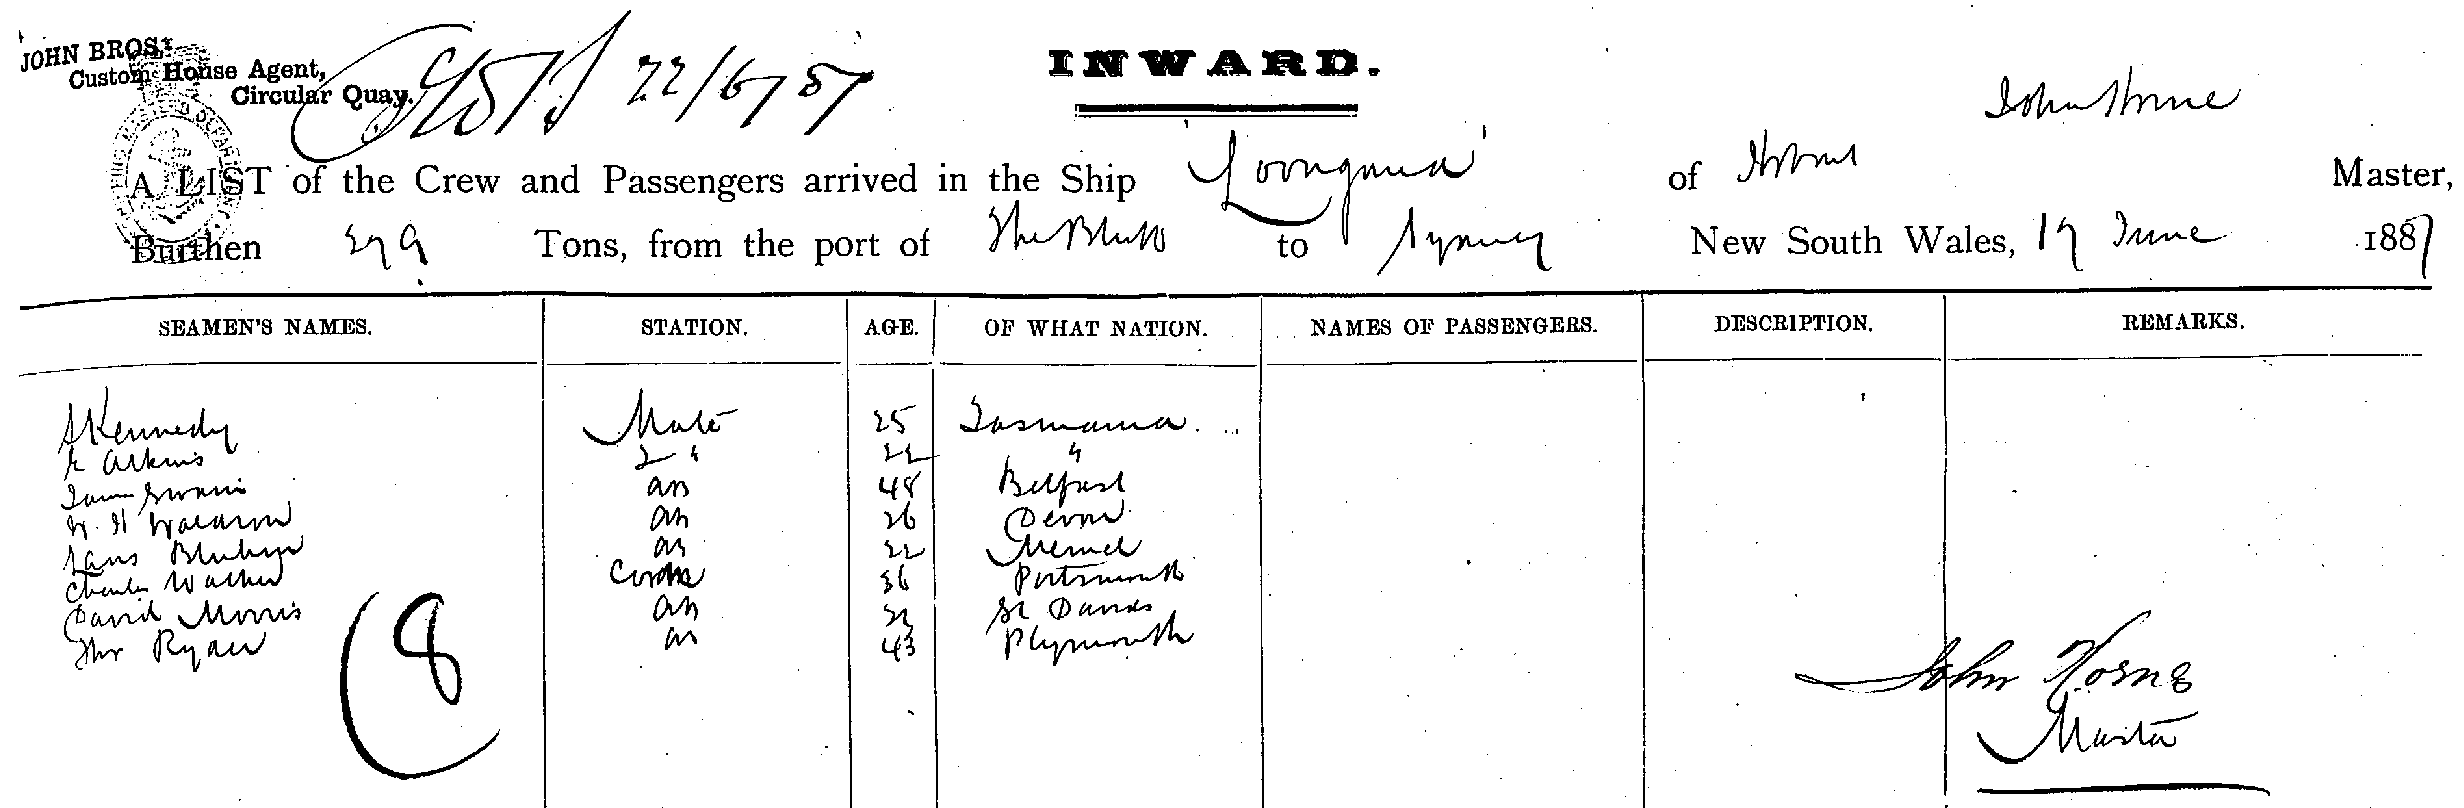 JOHN BROS.
Custom House Agent,
Circular Quay.
22/6/87
INWARD.
John Horne
A LIST of the Crew and Passengers arrived in the Ship 'Loongana' of Hobart Master,
Burthen Tons, from the port of The Bluff to Sydney New South Wales, 19 June 1887
SEAMEN'S NAMES. STATION. AGE. OF WHAT NATION. NAMES OF PASSENGERS. DESCRIPTION. REMARKS.
Kennedy Mate 25 Tasmania
Atkins 2 " 22 "
48 Belfast
W. H 26 Devon
Hans 22 Memel
Charles Walker Cook 36 Portsmouth
David Morris AB St Davids
Thos Ryan 43 Plymouth
(8
John Horne
Master